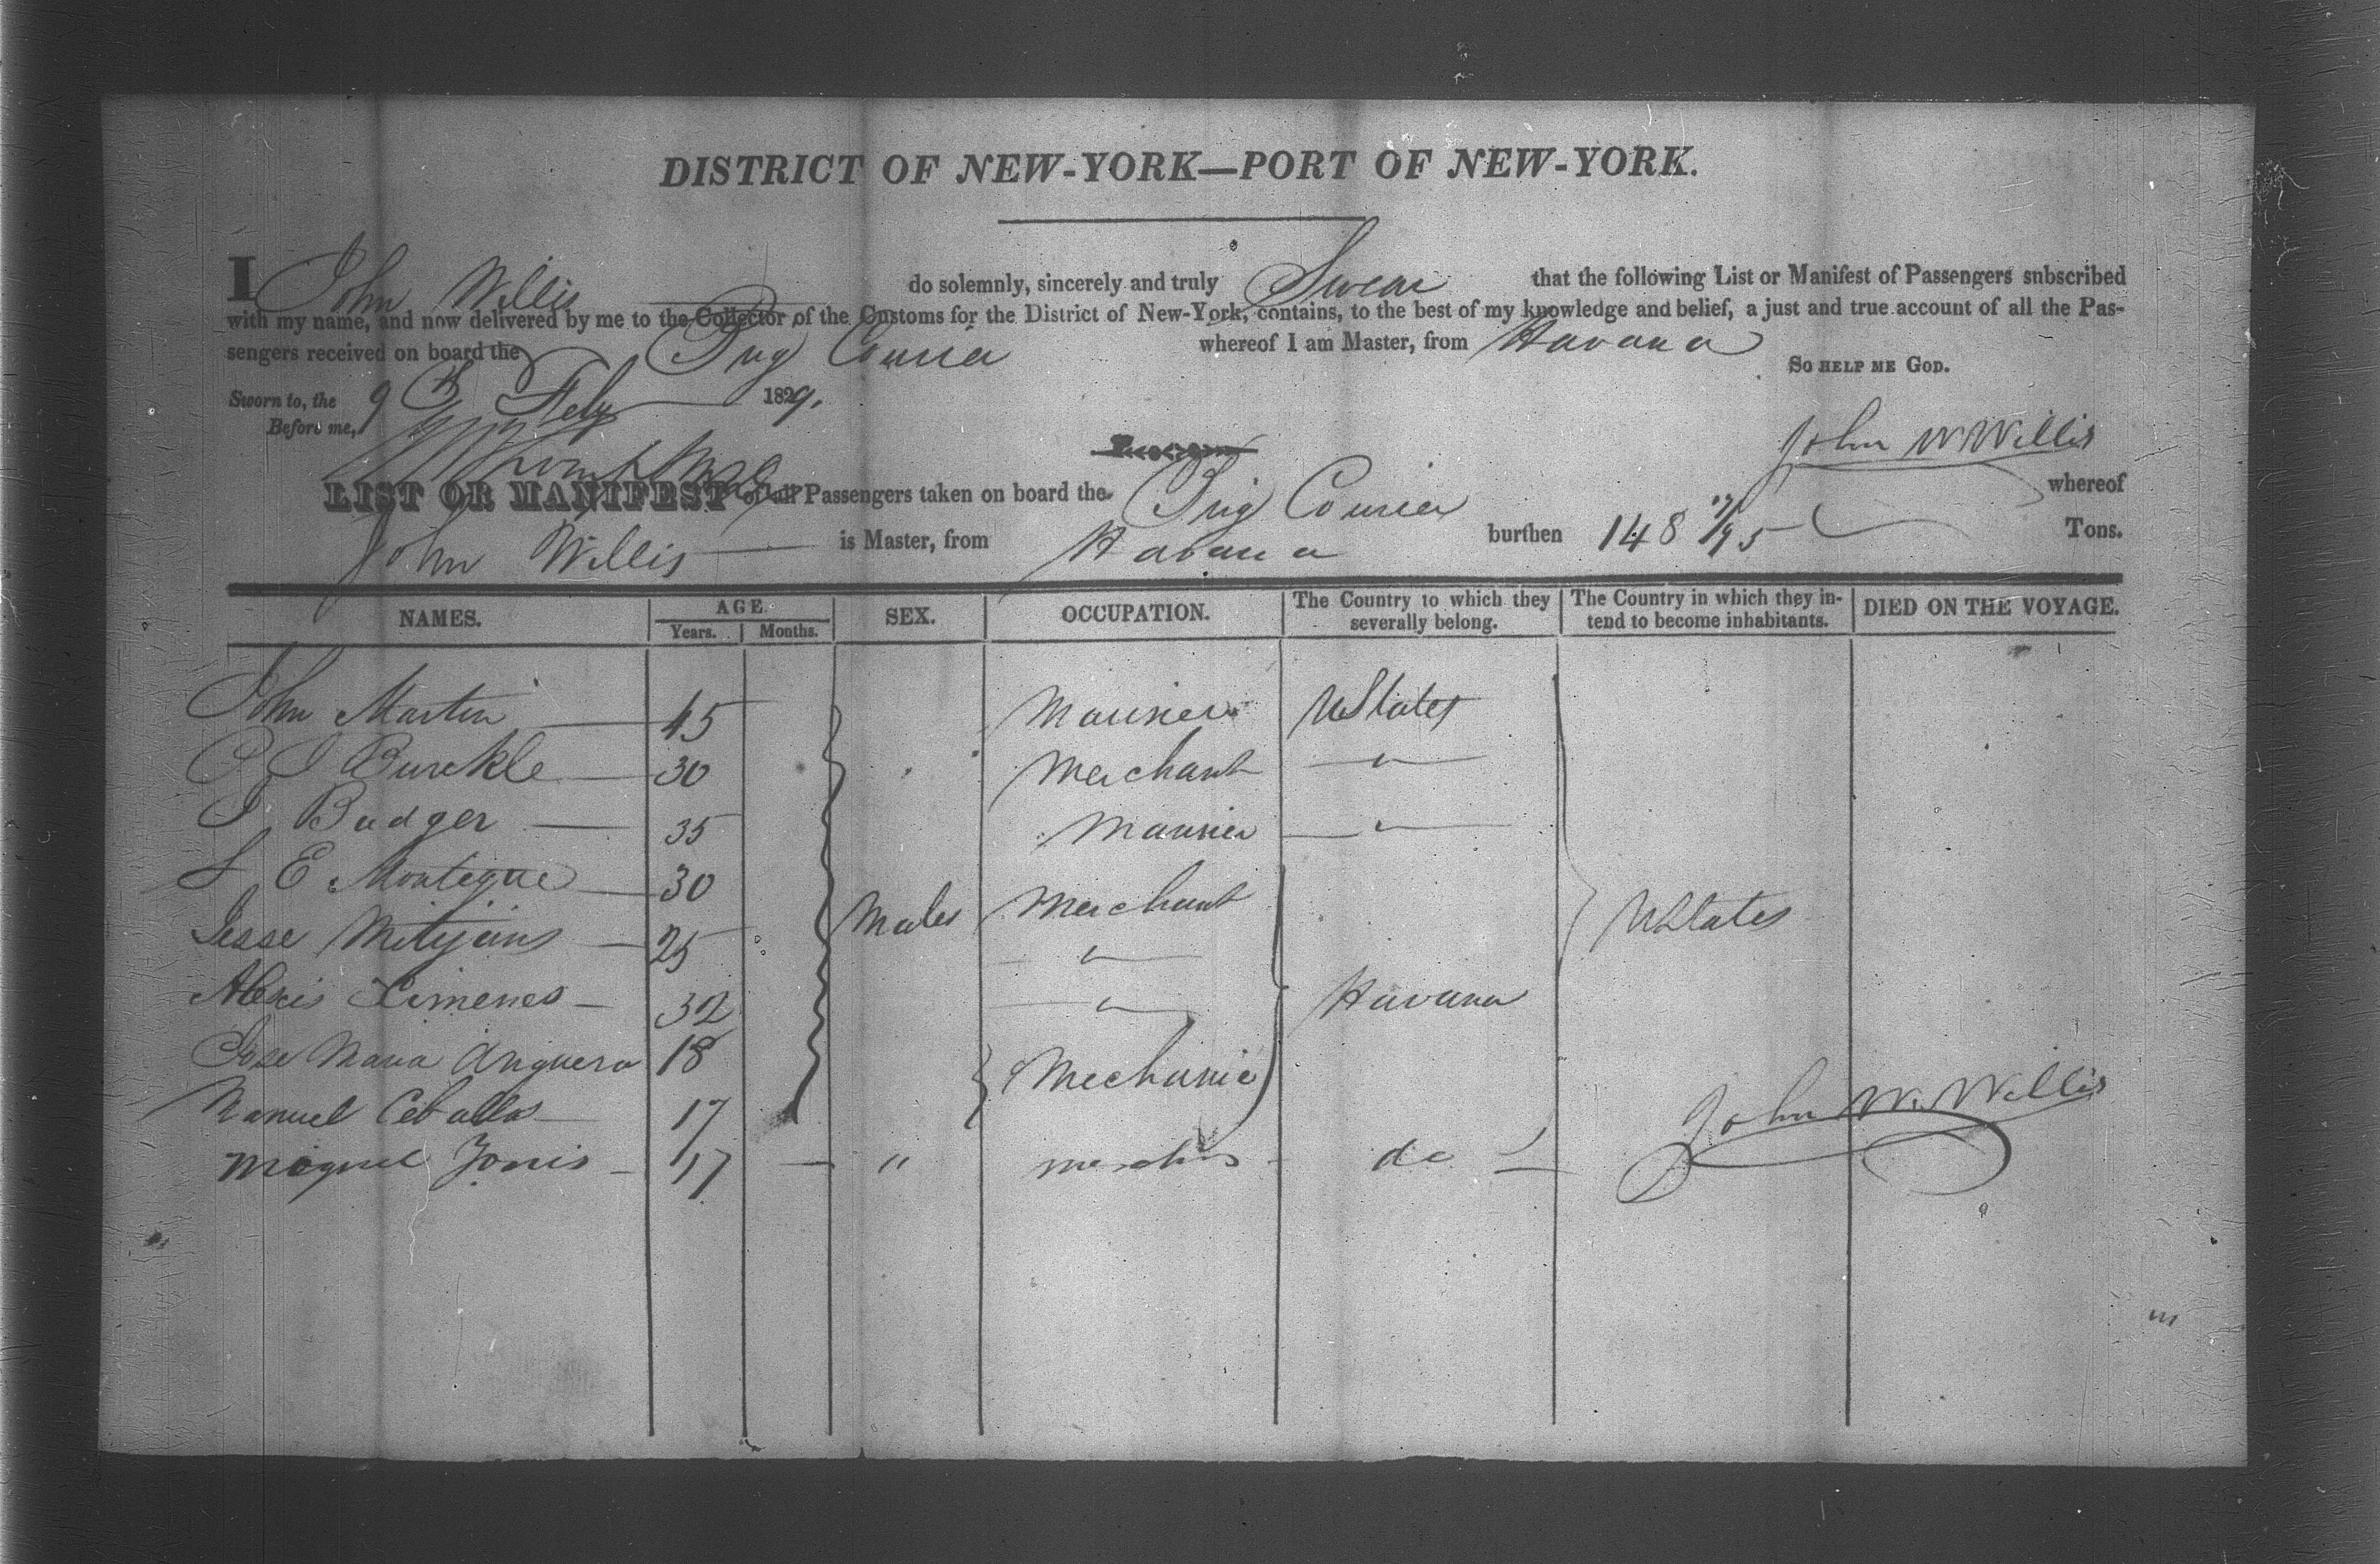 DISTRICT OF NEW-YORK—PORT OF NEW-YORK.
I John Willis do solemnly, sincerely and truly Swear that the following List or Manifest of Passengers subscribed
with my name, and now delivered by me to the Collector of the Customs for the District of New-York, contains, to the best of my knowledge and belief, a just and true account of all the Pas-
sengers received on board the Brig Courier whereof I am Master, from Havana
SO HELP ME GOD.
Sworn to, the 9th Feby 1829.
Before me,
John W Willis
LIST OR MANIFEST of all Passengers taken on board the Brig Courier whereof
John Willis is Master, from Havana burthen 148 Tons.
NAMES. AGE. Years. Months. SEX. OCCUPATION. The Country to which they severally belong. The Country in which they in-tend to become inhabitants. DIED ON THE VOYAGE.
John Martin 45 Mariner UStates
Burckle 30 Merchant "
Badger 35 Mariner "
E Montegue 30 Males Merchant UStates
Jesse Mitijans 25 "
Alexis Ximenes 32 " Havana
Jose Maria Anguera 18 Mechanic
Manuel Ceballos 17
John W. Willis
Miguel 17 " do